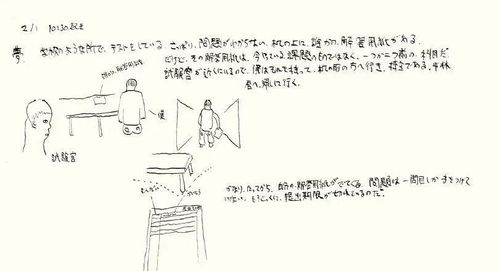 2/1 10:30起き
夢. 学校のような所で、テストをしている。さっぱり、問題がわからない。机の上に、誰かの、解答用紙がある。
だけど、その解答用紙は、今やっている課題のものではなく、一つか二つ前の、科目だ
試験官が近くにいるので、僕はそれを持って、机の前の方へ行き、
返しに行く。
誰かの解答用紙
僕
試験官
かなり、たってから、自分の解答用紙がでてくる。問題は一問目しか手をつけて
いない。もうとっくに、提出期限が切れているのだ。